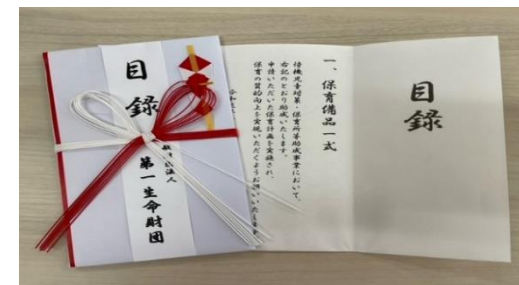 目録
第一生命財団
目録
一、保育備品一式
待機児童対策・保育所等助成事業において、
右記のとおり助成いたします。
申請いただいた保育計画を実施され、
保育の質的向上を実現いただくようお願いいたします